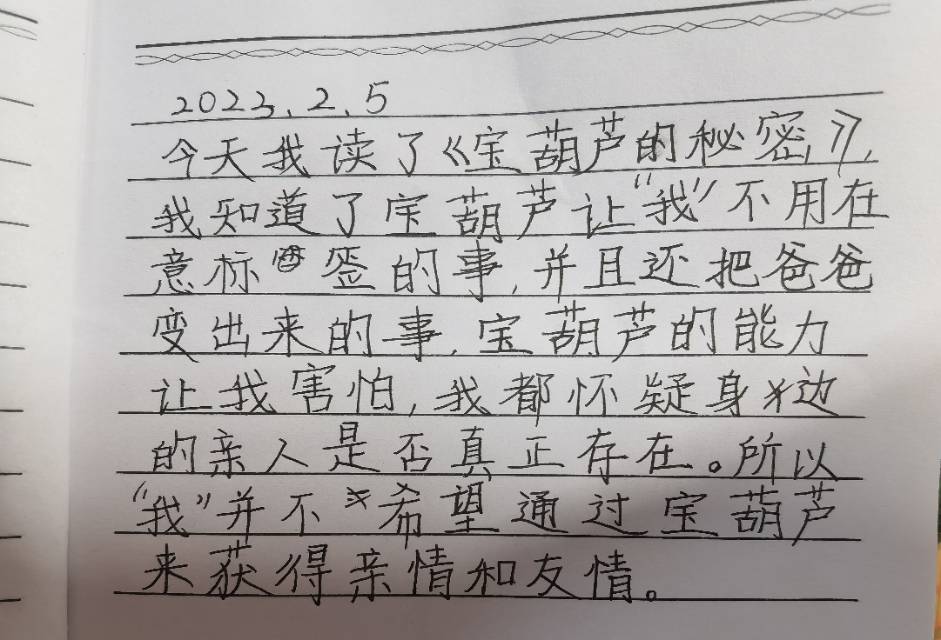 2023.2.5
今天我读了《宝葫芦的秘密》,
我知道了宝葫芦让“我”不用在
意标签的事,并且还把爸爸
变出来的事,宝葫芦的能力
让我害怕,我都怀疑身边
的亲人是否真正存在。所以
“我”并不希望通过宝葫芦
来获得亲情和友情。